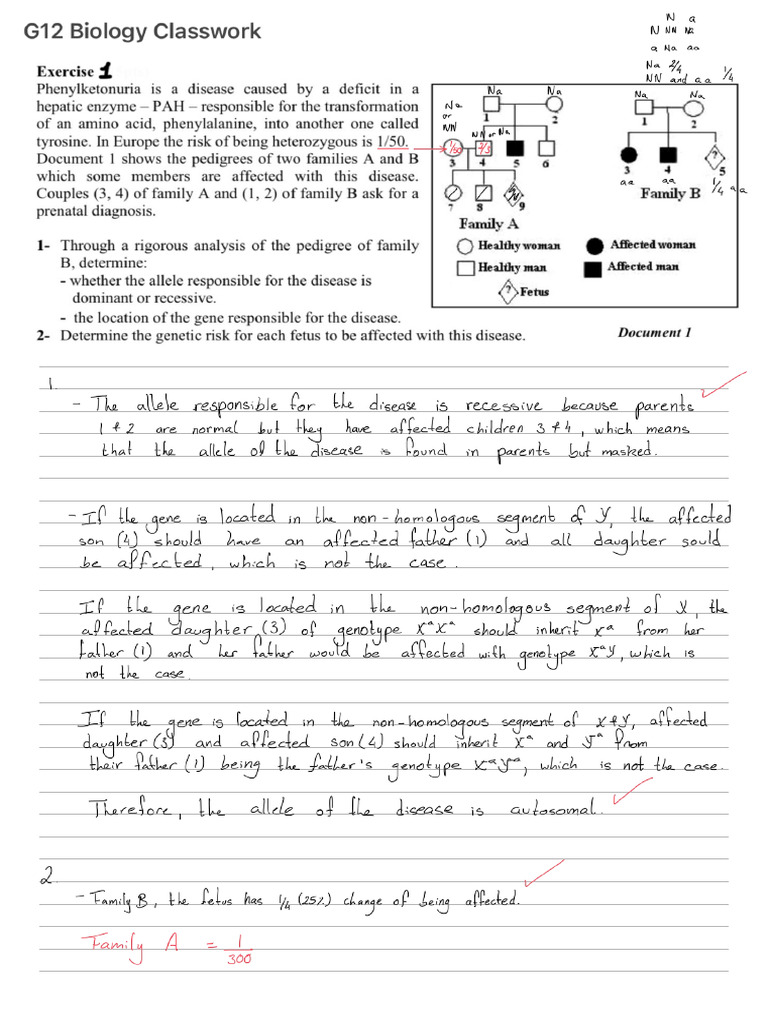 G12 Biology Classwork
N a
N NN Na
a Na aa
Na 2/4
NN and aa 1/4
Exercise 1
Phenylketonuria is a disease caused by a deficit in a
hepatic enzyme – PAH – responsible for the transformation
of an amino acid, phenylalanine, into another one called
tyrosine. In Europe the risk of being heterozygous is 1/50.
Document 1 shows the pedigrees of two families A and B
which some members are affected with this disease.
Couples (3, 4) of family A and (1, 2) of family B ask for a
prenatal diagnosis.
1- Through a rigorous analysis of the pedigree of family
B, determine:
- whether the allele responsible for the disease is
dominant or recessive.
- the location of the gene responsible for the disease.
2- Determine the genetic risk for each fetus to be affected with this disease.
Na Na
1 2
Na
or
NN
NN or Na
1/50 2/3
3 4 5 6
7 8 9
Family A
Na Na
1 2
3 4 5
aa aa 1/4 aa
Family B
Healthy woman Affected woman
Healthy man Affected man
? Fetus
Document 1
1.
- The allele responsible for the disease is recessive because parents
1 & 2 are normal but they have affected children 3 & 4, which means
that the allele of the disease is found in parents but masked.
- If the gene is located in the non-homologous segment of Y, the affected
son (4) should have an affected father (1) and all daughter sould
be affected, which is not the case.
If the gene is located in the non-homologous segment of X, the
affected daughter (3) of genotype XᵃXᵃ should inherit Xᵃ from her
father (1) and her father would be affected with genotype XᵃY, which is
not the case.
If the gene is located in the non-homologous segment of X&Y, affected
daughter (3) and affected son (4) should inherit Xᵃ and Yᵃ from
their father (1) being the father's genotype XᵃYᵃ, which is not the case.
Therefore, the allele of the disease is autosomal.
2.
- Family B, the fetus has 1/4 (25%) change of being affected.
Family A = 1/300